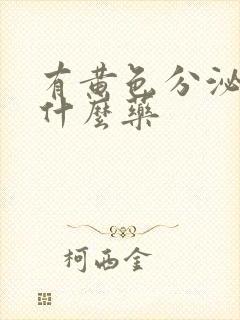 有黄色分泌
什麼藥
柯西金